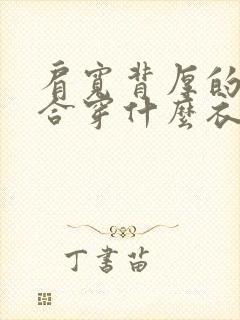 肩寬背厚的
合穿什麼衣
丁書苗